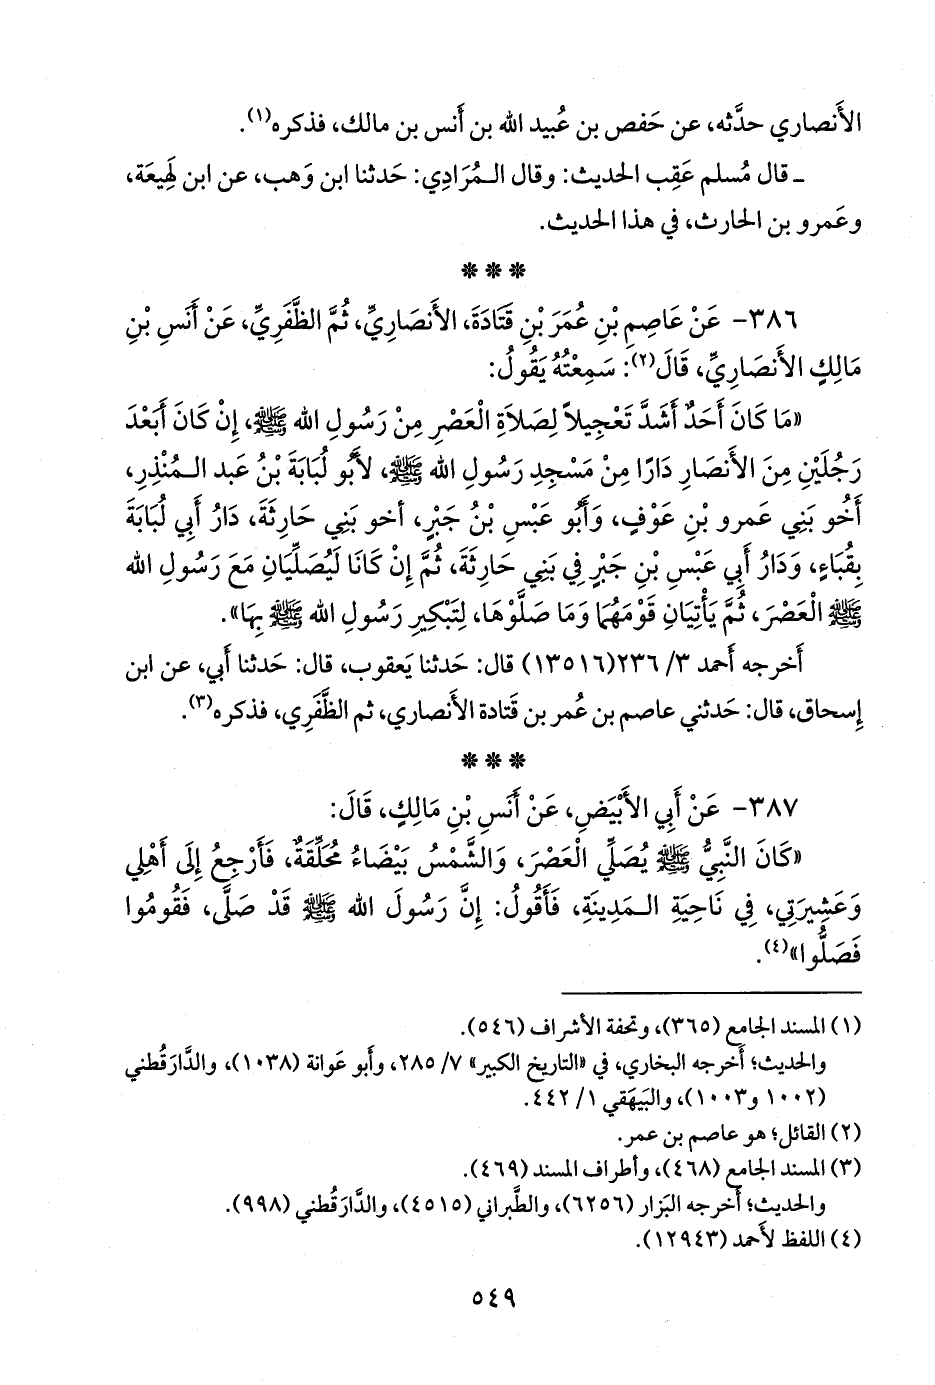 الأَنصاري حدَّثه، عن حَفص بن عُبيد الله بن أَنس بن مالك، فذكره(١).
ـ قال مُسلم عَقِب الحديث: وقال الـمُرَادِي: حَدثنا ابن وَهب، عن ابن لَهِيعَة،
وعَمرو بن الحارث، في هذا الحديث.
* * *
٣٨٦- عَنْ عَاصِمِ بْنِ عُمَرَ بْنِ قَتَادَةَ، الأَنصَارِيِّ، ثُمَّ الظَّفَرِيِّ، عَنْ أَنَسِ بْنِ
مَالِكٍ الأَنصَارِيِّ، قَالَ(٢): سَمِعْتُهُ يَقُولُ:
«مَا كَانَ أَحَدٌ أَشَدَّ تَعْجِيلاً لِصَلاَةِ الْعَصْرِ مِنْ رَسُولِ الله ﷺ، إِنْ كَانَ أَبْعَدَ
رَجُلَيْنِ مِنَ الأَنصَارِ دَارًا مِنْ مَسْجِدِ رَسُولِ الله ﷺ، لأَبُو لُبَابَةَ بْنُ عَبد الـمُنْذِرِ،
أَخُو بَنِي عَمرو بْنِ عَوْفٍ، وَأَبُو عَبْسِ بْنُ جَبْرٍ، أخو بَنِي حَارِثَةَ، دَارُ أَبِي لُبَابَةَ
بِقُبَاءٍ، وَدَارُ أَبِي عَبْسِ بْنِ جَبْرٍ فِي بَنِي حَارِثَةَ، ثُمَّ إِنْ كَانَا لَيُصَلِّيَانِ مَعَ رَسُولِ الله
ﷺ الْعَصْرَ، ثُمَّ يَأْتِيَانِ قَوْمَهُمَا وَمَا صَلَّوْهَا، لِتَبْكِيرِ رَسُولِ الله ﷺ بِهَا».
أَخرجه أَحمد ٣/ ٢٣٦(١٣٥١٦) قال: حَدثنا يَعقوب، قال: حَدثنا أَبي، عن ابن
إِسحاق، قال: حَدثني عاصم بن عُمر بن قَتادة الأَنصاري، ثم الظَّفَرِي، فذكره(٣).
* * *
٣٨٧- عَنْ أَبِي الأَبْيَضِ، عَنْ أَنَسِ بْنِ مَالِكٍ، قَالَ:
«كَانَ النَّبِيُّ ﷺ يُصَلِّي الْعَصْرَ، وَالشَّمْسُ بَيْضَاءُ مُحَلِّقَةٌ، فَأَرْجِعُ إِلَى أَهْلِي
وَعَشِيرَتِي، فِي نَاحِيَةِ الـمَدِينَةِ، فَأَقُولُ: إِنَّ رَسُولَ الله ﷺ قَدْ صَلَّى، فَقُومُوا
فَصَلُّوا»(٤).
(١) المسند الجامع (٣٦٥)، وتحفة الأشراف (٥٤٦).
والحديث؛ أَخرجه البخاري، في «التاريخ الكبير» ٧/ ٢٨٥، وأَبو عَوانة (١٠٣٨)، والدَّارَقُطني
(١٠٠٢ و١٠٠٣)، والبَيهَقي ١/ ٤٤٢.
(٢) القائل؛ هو عاصم بن عمر.
(٣) المسند الجامع (٤٦٨)، وأطراف المسند (٤٦٩).
والحديث؛ أَخرجه البَزار (٦٢٥٦)، والطَّبراني (٤٥١٥)، والدَّارَقُطني (٩٩٨).
(٤) اللفظ لأَحمد (١٢٩٤٣).
٥٤٩